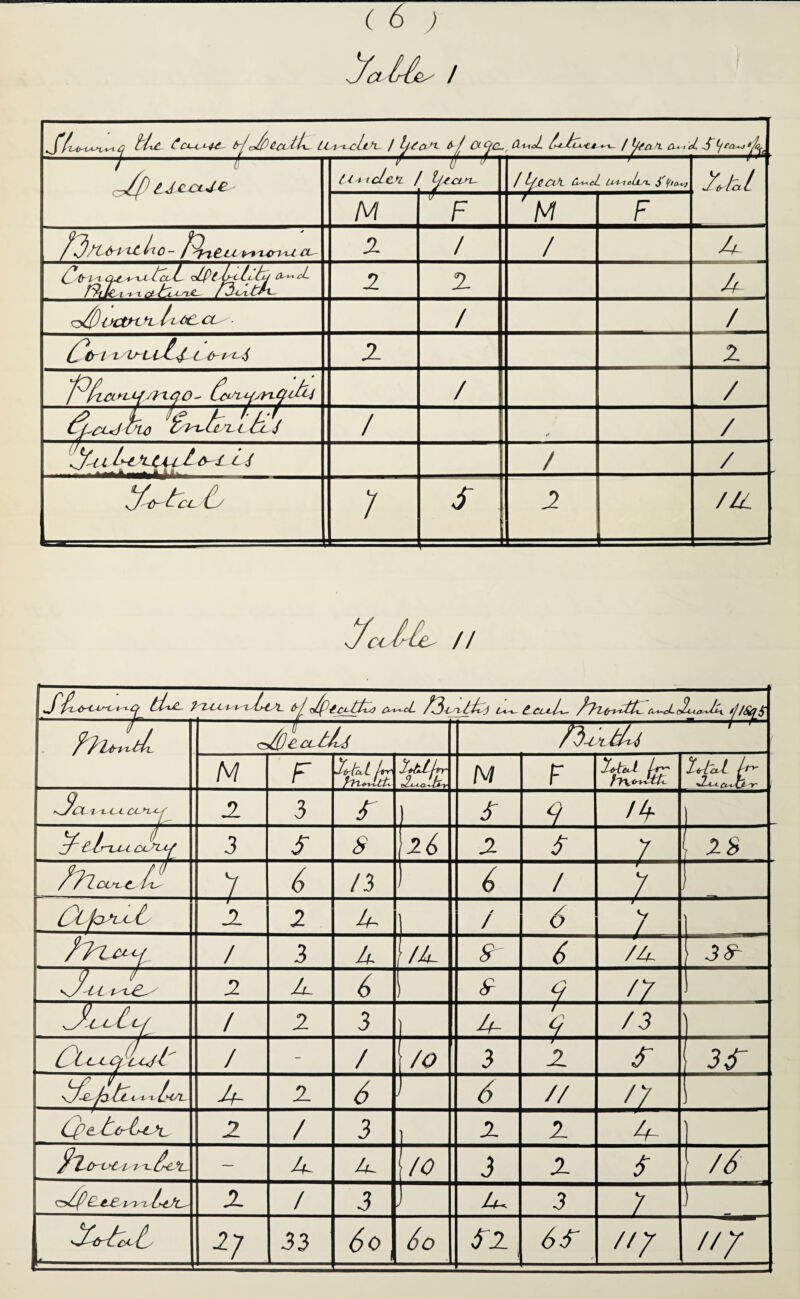 ( 6 )
Table I
Showing the Cause of Death under 1 Year of age, and between 1 Year and 5 Years of age
Disease Under 1 Year 1 Year and under 5 Years Total
M F M F
Broncho-Pneumonia 2 1 1 4
Congenital Debility and
Premature Birth 2 2 4
Diarrhoea. 1 1
Convulsions 2 2
Pharyngo-Laryngitis 1 1
Gastro Enteritis 1 1
Tuberculosis 1 1
Total 7 5 2 14
Table II
Showing the number of Deaths and Births in each Month and Quarter of 1895
Month Deaths Births
M F Total for Month Total for Quarter M F Total for Month Total for Quarter
January 2 3 5 5 9 14
February 3 5 8 26 2 5 7 28
March 7 6 13 6 1 7
April 2 2 4 1 6 7
May 1 3 4 14 8 6 14 38
June 2 4 6 8 9 17
July 1 2 3 4 9 13
August 1 - 1 10 3 2 5 35
September 4 2 6 6 11 17
October 2 1 3 2 2 4
November - 4 4 10 3 2 5 16
December 2 1 3 4 3 7
Total 27 33 60 60 52 65 117 117